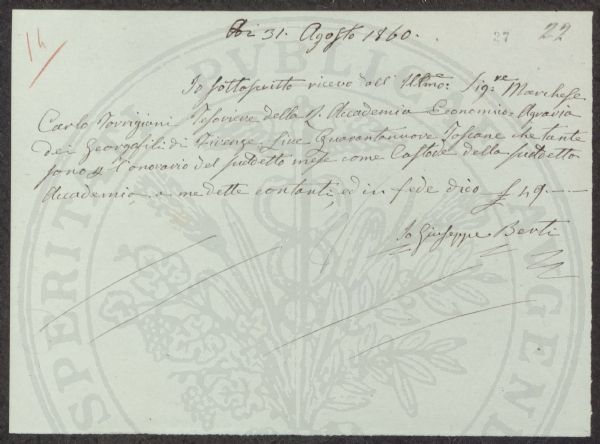 14
27
22
Adi 31. Agosto 1860.
Io sottoscritto ricevo dall' Illmo: Sig:re Marchese
Carlo Torrigiani Tesoriere della I. Accademia Economico-Agraria
dei Georgofili di Firenze, Lire Quarantanove Toscane che tante
sono p l'onorario del suddetto mese come Custode della suddetta
Accademia, a me dette contanti, ed in fede dico £ 49.--
Io Giuseppe Berti
PVBLICAE
PROSPERITATI
AVGENDAE